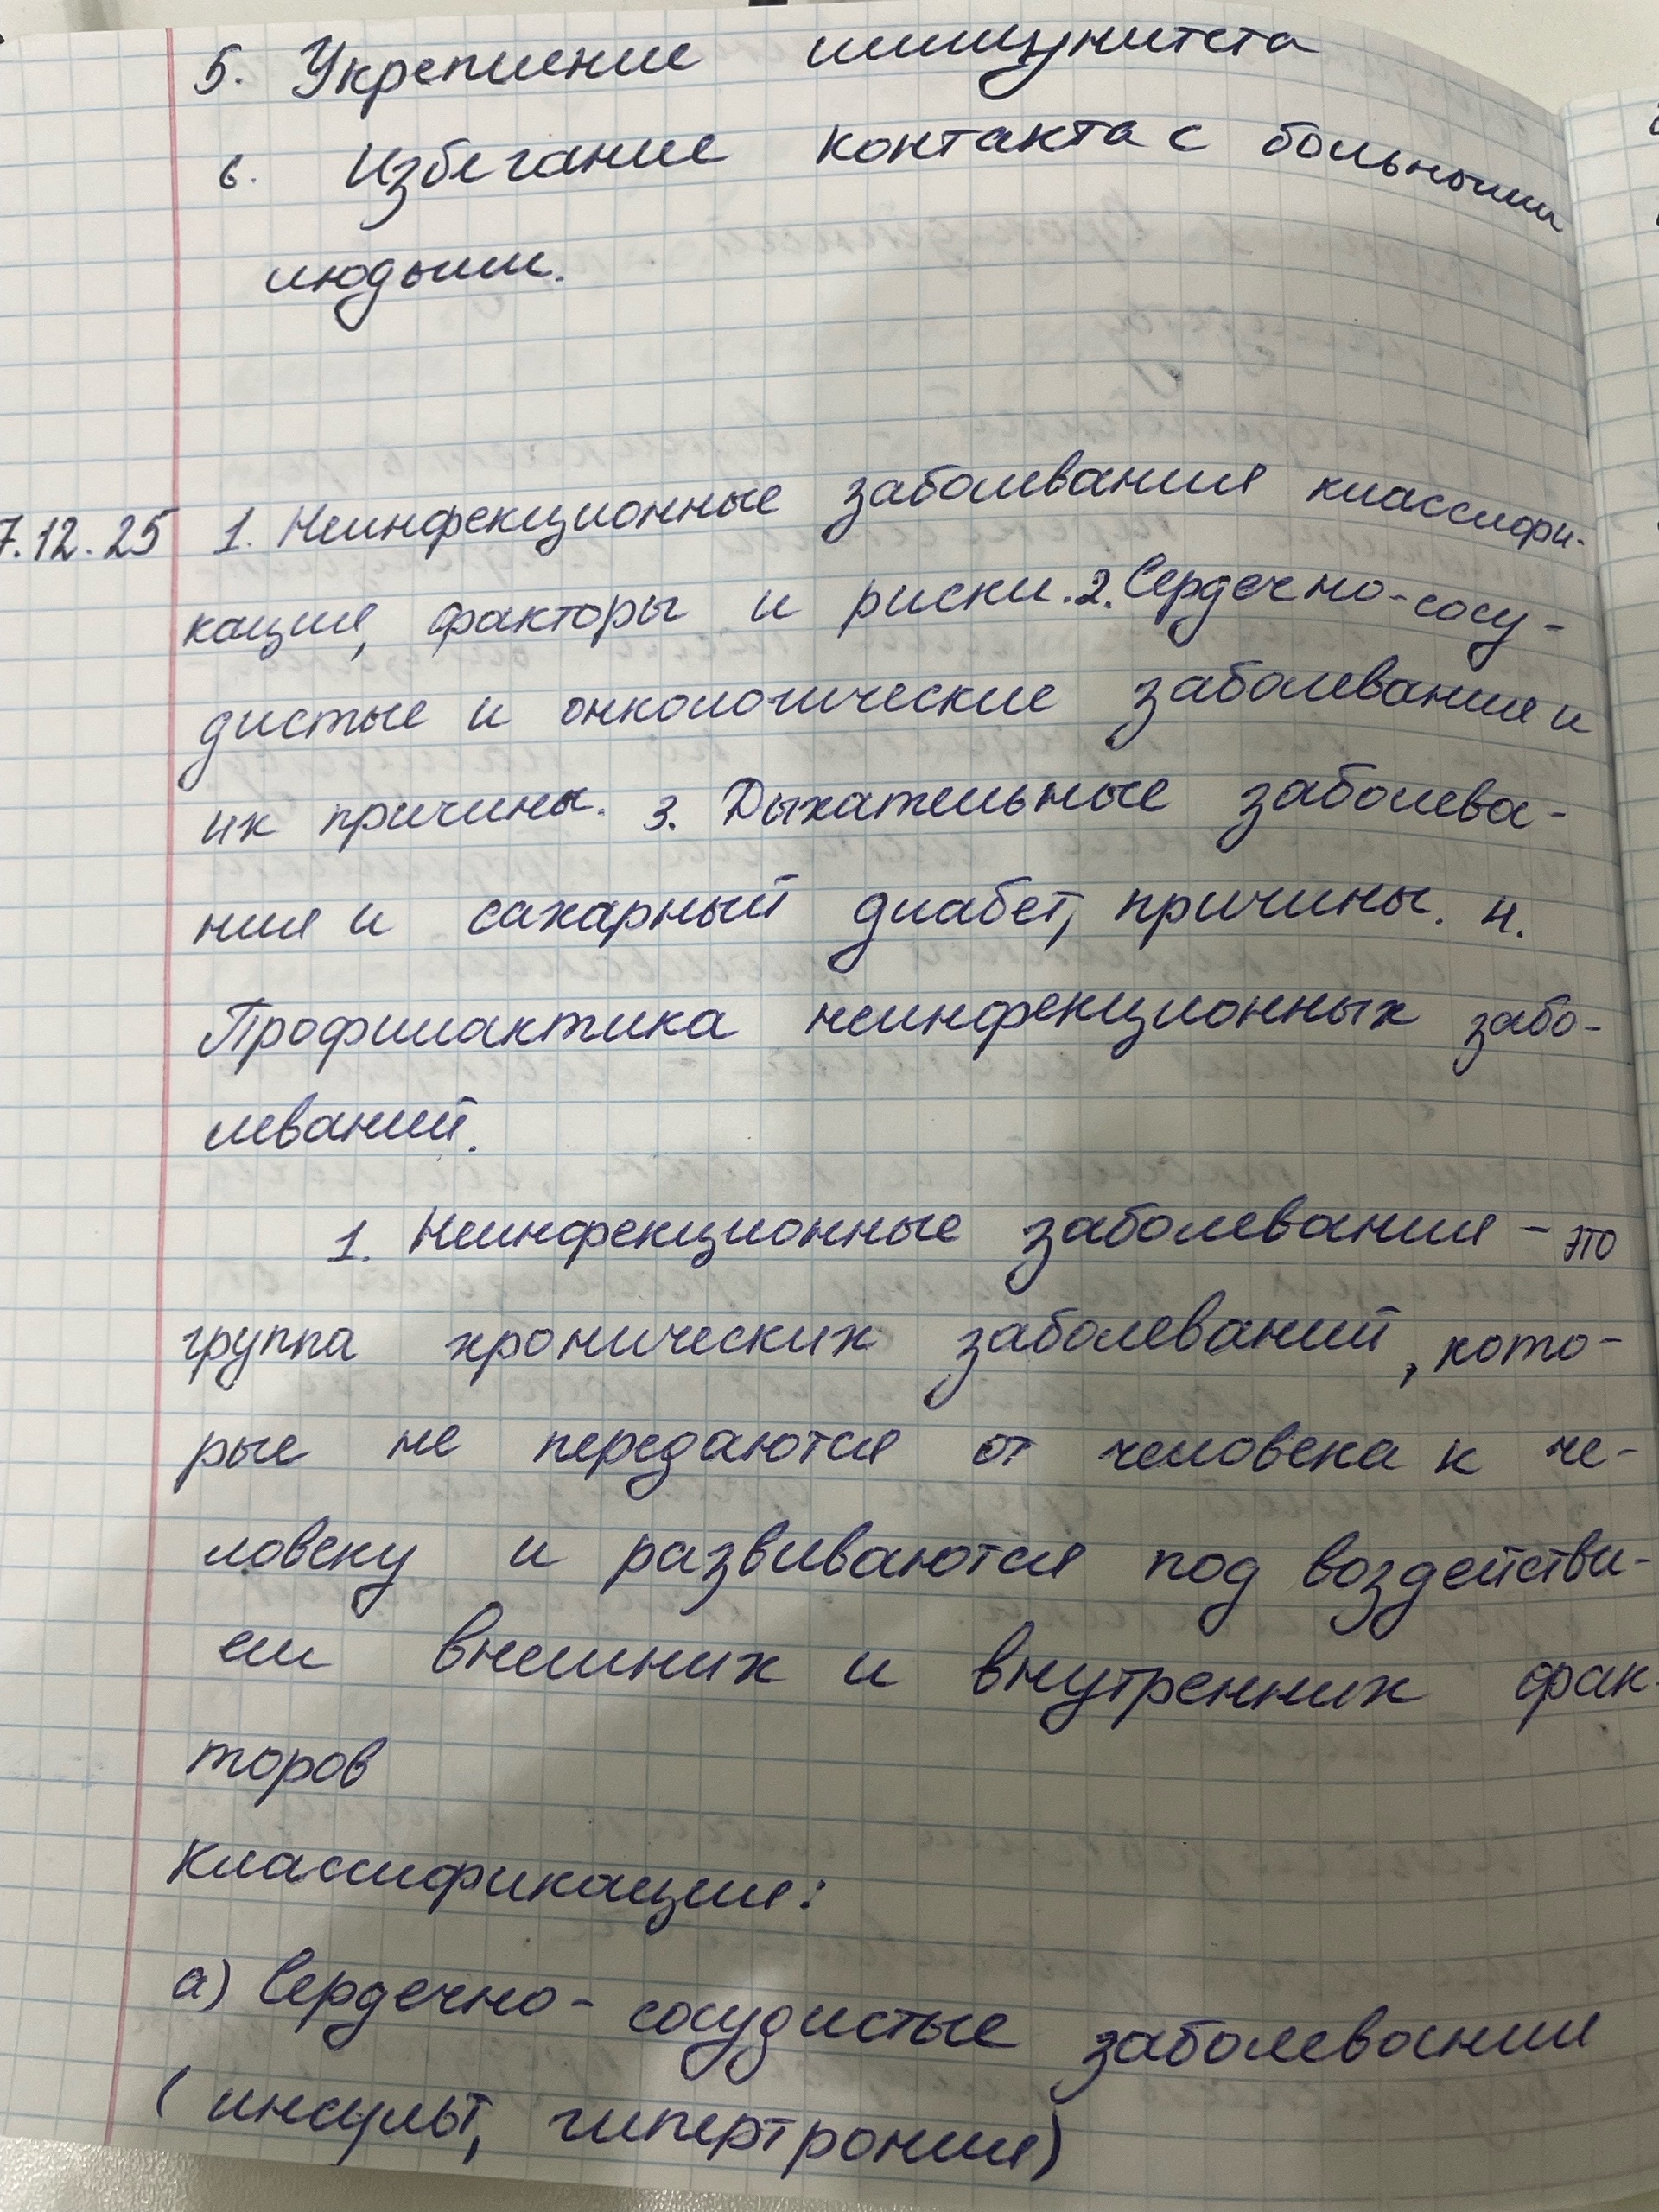 5. Укрепление иммунитета
6. Избегание контакта с больными
людьми.
7.12.25 1. Неинфекционные заболевания классифи-
кация, факторы и риски. 2. Сердечно-сосу-
дистые и онкологические заболевания и
их причины. 3. Дыхательные заболева-
ния и сахарный диабет, причины. 4.
Профилактика неинфекционных забо-
леваний.
1. Неинфекционные заболевания - это
группа хронических заболеваний, кото-
рые не передаются от человека к че-
ловеку и развиваются под воздействи-
ем внешних и внутренних фак-
торов
Классификация:
а) Сердечно-сосудистые заболевания
(инсульт, гипертрония)